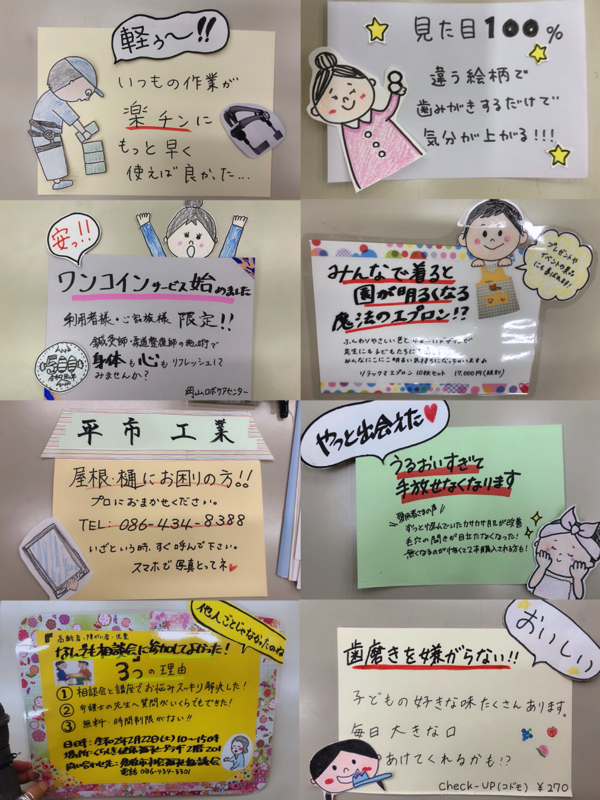 軽ぅ〜!!
いつもの作業が
楽チンに
もっと早く
使えば良かった...
見た目100%
違う絵柄で
歯みがきするだけで
気分が上がる!!!
安っ!!
ワンコインサービス始めました
利用者様・ご家族様 限定!!
鍼灸師・柔道整復師の施術で
身体も心もリフレッシュして
みませんか?
岡山ロボケアセンター
プレゼントや
イベントの景品
にも喜ばれます!
みんなで着ると
園が明るくなる
魔法のエプロン!?
ふんわりやさしい色と
先生にも子どもたちにも
みんなにこにこ明るい気持ちになっちゃいますね
リラックマエプロン 10枚セット 17,000円(税別)
平市工業
屋根・樋にお困りの方!!
プロにおまかせください。
TEL:086-434-8388
いざという時、すぐ呼んで下さい。
スマホで写真とってネ♥
やっと出会えた♥
うるおいすぎて
手放せなくなります
愛用者さまの声
ずっと悩んでいたカサカサ肌が改善
毛穴の開きが目立たなくなった!
無くなるのが怖くて2本購入される方も!
他人ごとじゃなかったのね
高齢者・障がい者・児童
なんでも相談会に参加してよかった!
3つの理由
①相談会と講座でお悩みスッキリ解決した!
②弁護士の先生へ質問がいくらでもできた!
③無料・時間制限がない!!
日時:令和2年2月22日(土)10〜15時
場所:くらしき健康福祉プラザ 2階201
問い合わせ先:倉敷市社会福祉協議会
電話 086-434-3301
おいしい
歯磨きを嫌がらない!!
子どもの好きな味たくさんあります。
毎日大きな口
あけてくれるかも!?
Check-UP(コドモ) ¥270